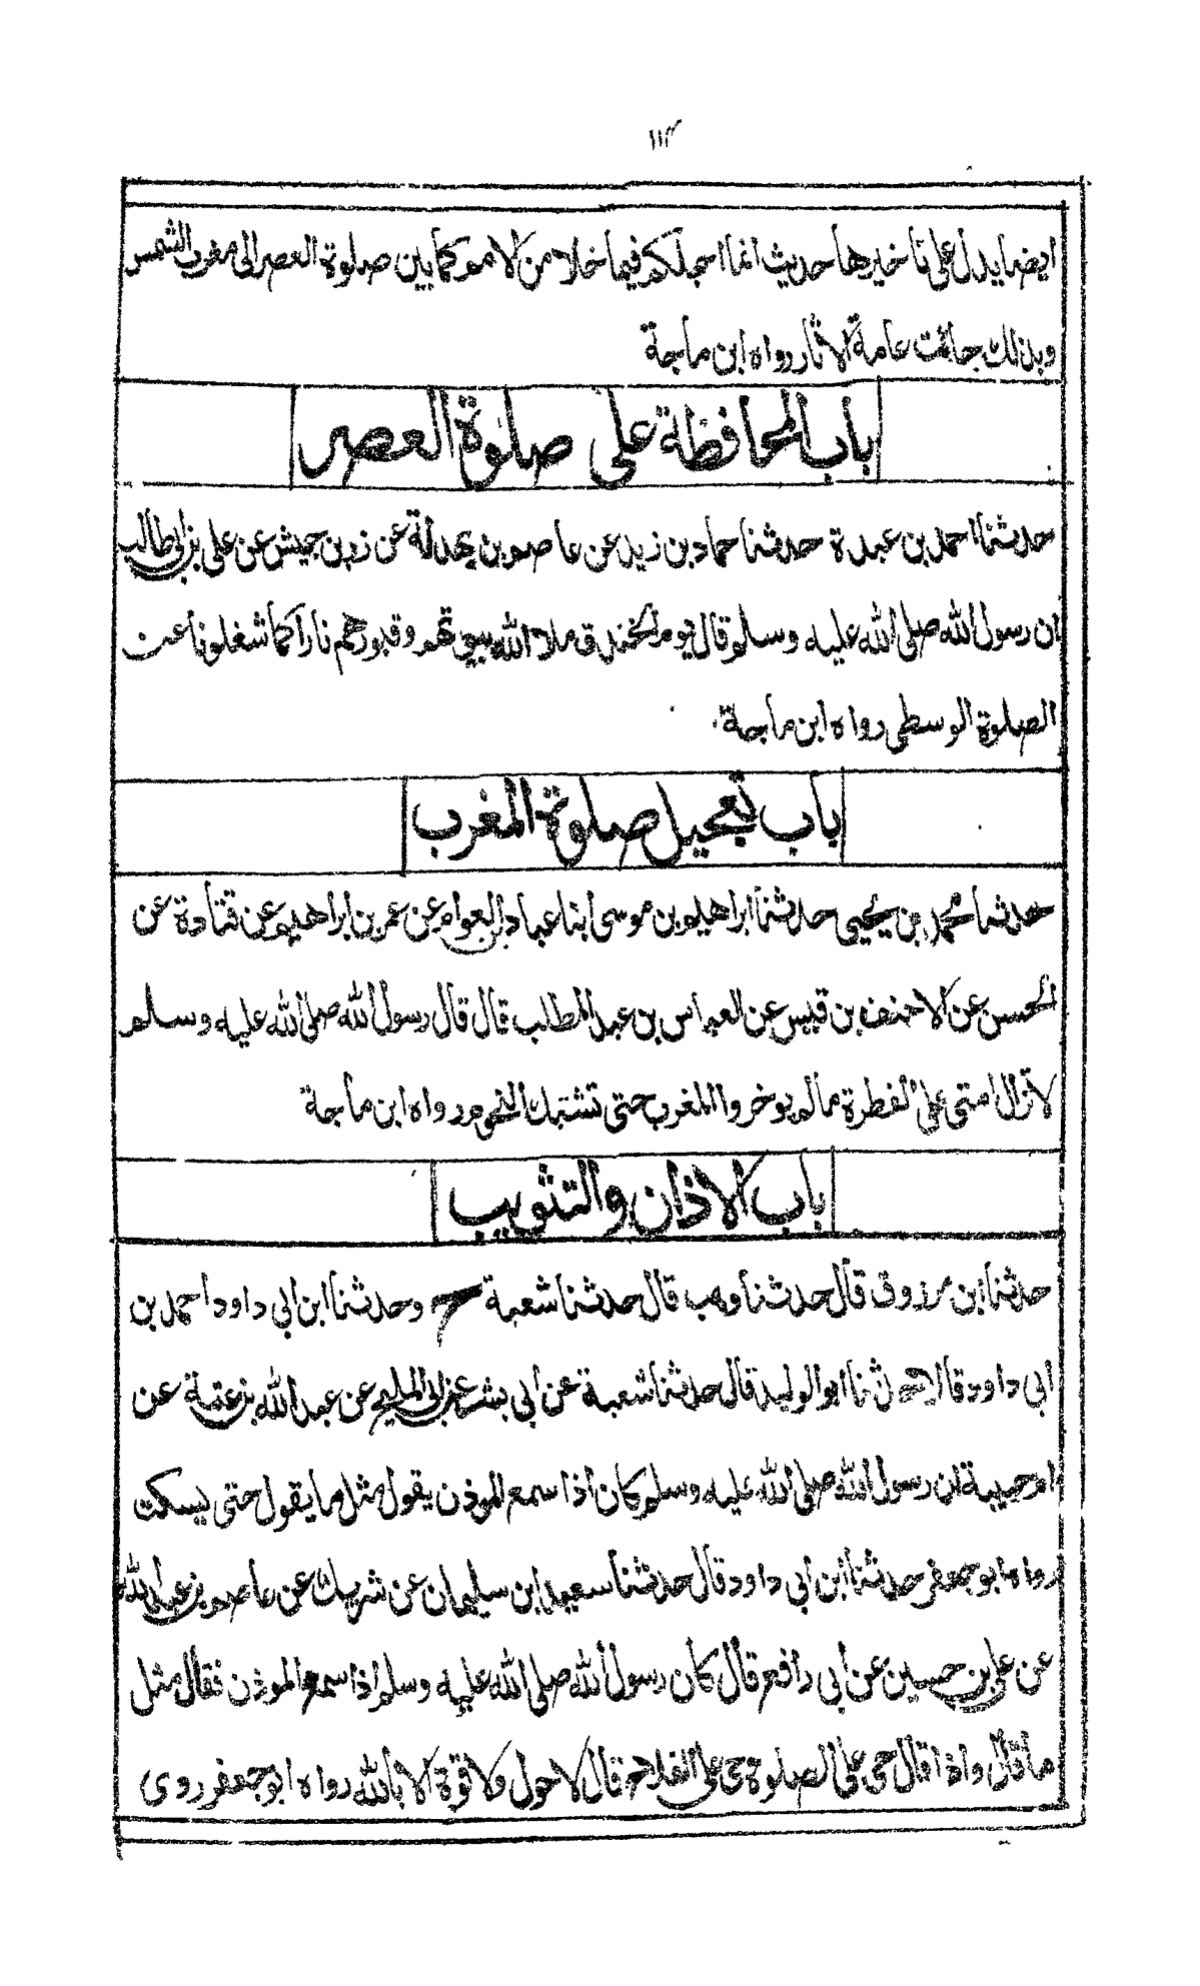 ۱۱۳
ايضا يدل على تأخيرها حديث انما اجلكم فيما خلا من الامم كما بين صلوة العصر الى مغرب الشمس
وبذلك جائت عامة الاثار رواه ابن ماجة
باب المحافظة على صلوة العصر
حدثنا احمد بن عبدة حدثنا حماد بن زيد عن عاصم بن بهدلة عن زر بن حبيش عن على بن ابى طالب
ان رسول الله صلى الله عليه وسلم قال يوم الخندق ملا الله بيوتهم وقبورهم نارا كما شغلونا عن
الصلوة الوسطى رواه ابن ماجة
باب تعجيل صلوة المغرب
حدثنا محمد بن يحيى حدثنا ابراهيم بن موسى ابنا عباد بن العوام عن عمر بن ابراهيم عن قتادة عن
الحسن عن الاحنف بن قيس عن العباس بن عبد المطلب قال قال رسول الله صلى الله عليه وسلم
لا تزال امتى على الفطرة مالم يوخروا المغرب حتى تشتبك النجوم رواه ابن ماجة
باب الاذان والتثويب
حدثنا ابن مرزوق قال حدثنا وهب قال حدثنا شعبة ح وحدثنا ابن ابى داود احمد بن
ابى داود قال حدثنا ابو الوليد قال حدثنا شعبة عن ابى بشر عن ابى المليح عن عبد الله بن عتبة عن
ام حبيبة ان رسول الله صلى الله عليه وسلم كان اذا سمع الموذن يقول مثل ما يقول حتى يسكت
رواه ابو جعفر حدثنا ابن ابى داود قال حدثنا سعيد ابن سليمان عن شريك عن عاصم بن عبيد الله
عن على بن حسين عن ابى رافع قال كان رسول الله صلى الله عليه وسلم اذا سمع الموذن فقال مثل
ما قال واذا قال حى على الصلوة حى على الفلاح قال لا حول ولا قوة الا بالله رواه ابو جعفر روى